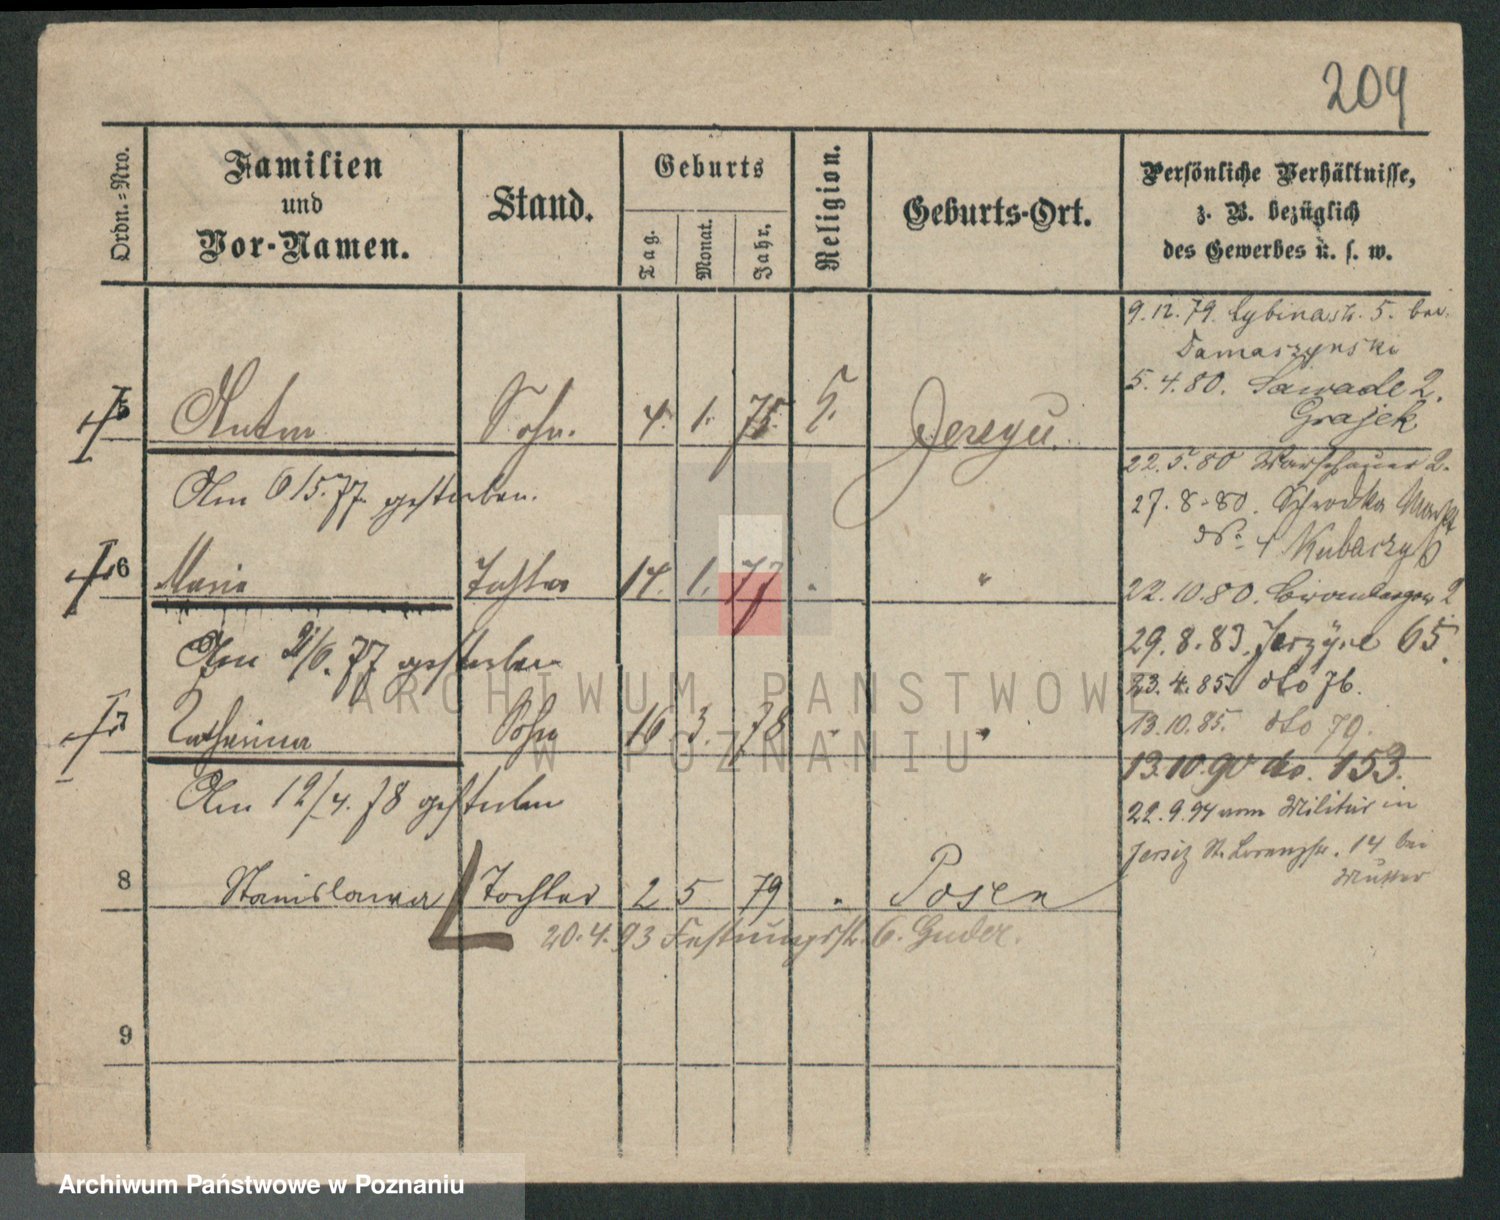 209
Ordn.-Nro.
Familien
und
Vor-Namen.
Stand.
Geburts
Tag.
Monat.
Jahr.
Religion.
Geburts-Ort.
Persönliche Verhältnisse,
z. B. bezüglich
des Gewerbes u. s. w.
9.12.79. Cybinastr. 5. bei
Damaszynski
5.4.80. Sawade 2.
Grajek
5 Anton Sohn. 4. 1. 75. Jerzyce
22.5.80 Warschauer 2.
Am 6/5.77. gestorben.
27.8.80. Schrodka Markt
No. 4 Kubaczyk
6 Marie Tochter 14. 1. 77 "
22.10.80. Bromberger 2
29.8.83. Jerzyce 65.
Am 21/6. 77 gestorben
23.4.85. dto 76.
7 Catharina Sohn 16 3. 78 "
13.10.85. dto 79.
13.10.90 do. 153.
Am 12/4. 78 gestorben
22.9.94 vom Militär in
Jersitz St. Lorenzstr. 14 bei
Mutter
8 Stanislawa Tochter 2 5 79 " Posen
20.4.93 Festungsstr. 6. Guder.
9
ARCHIWUM PAŃSTWOWE
W POZNANIU
Archiwum Państwowe w Poznaniu